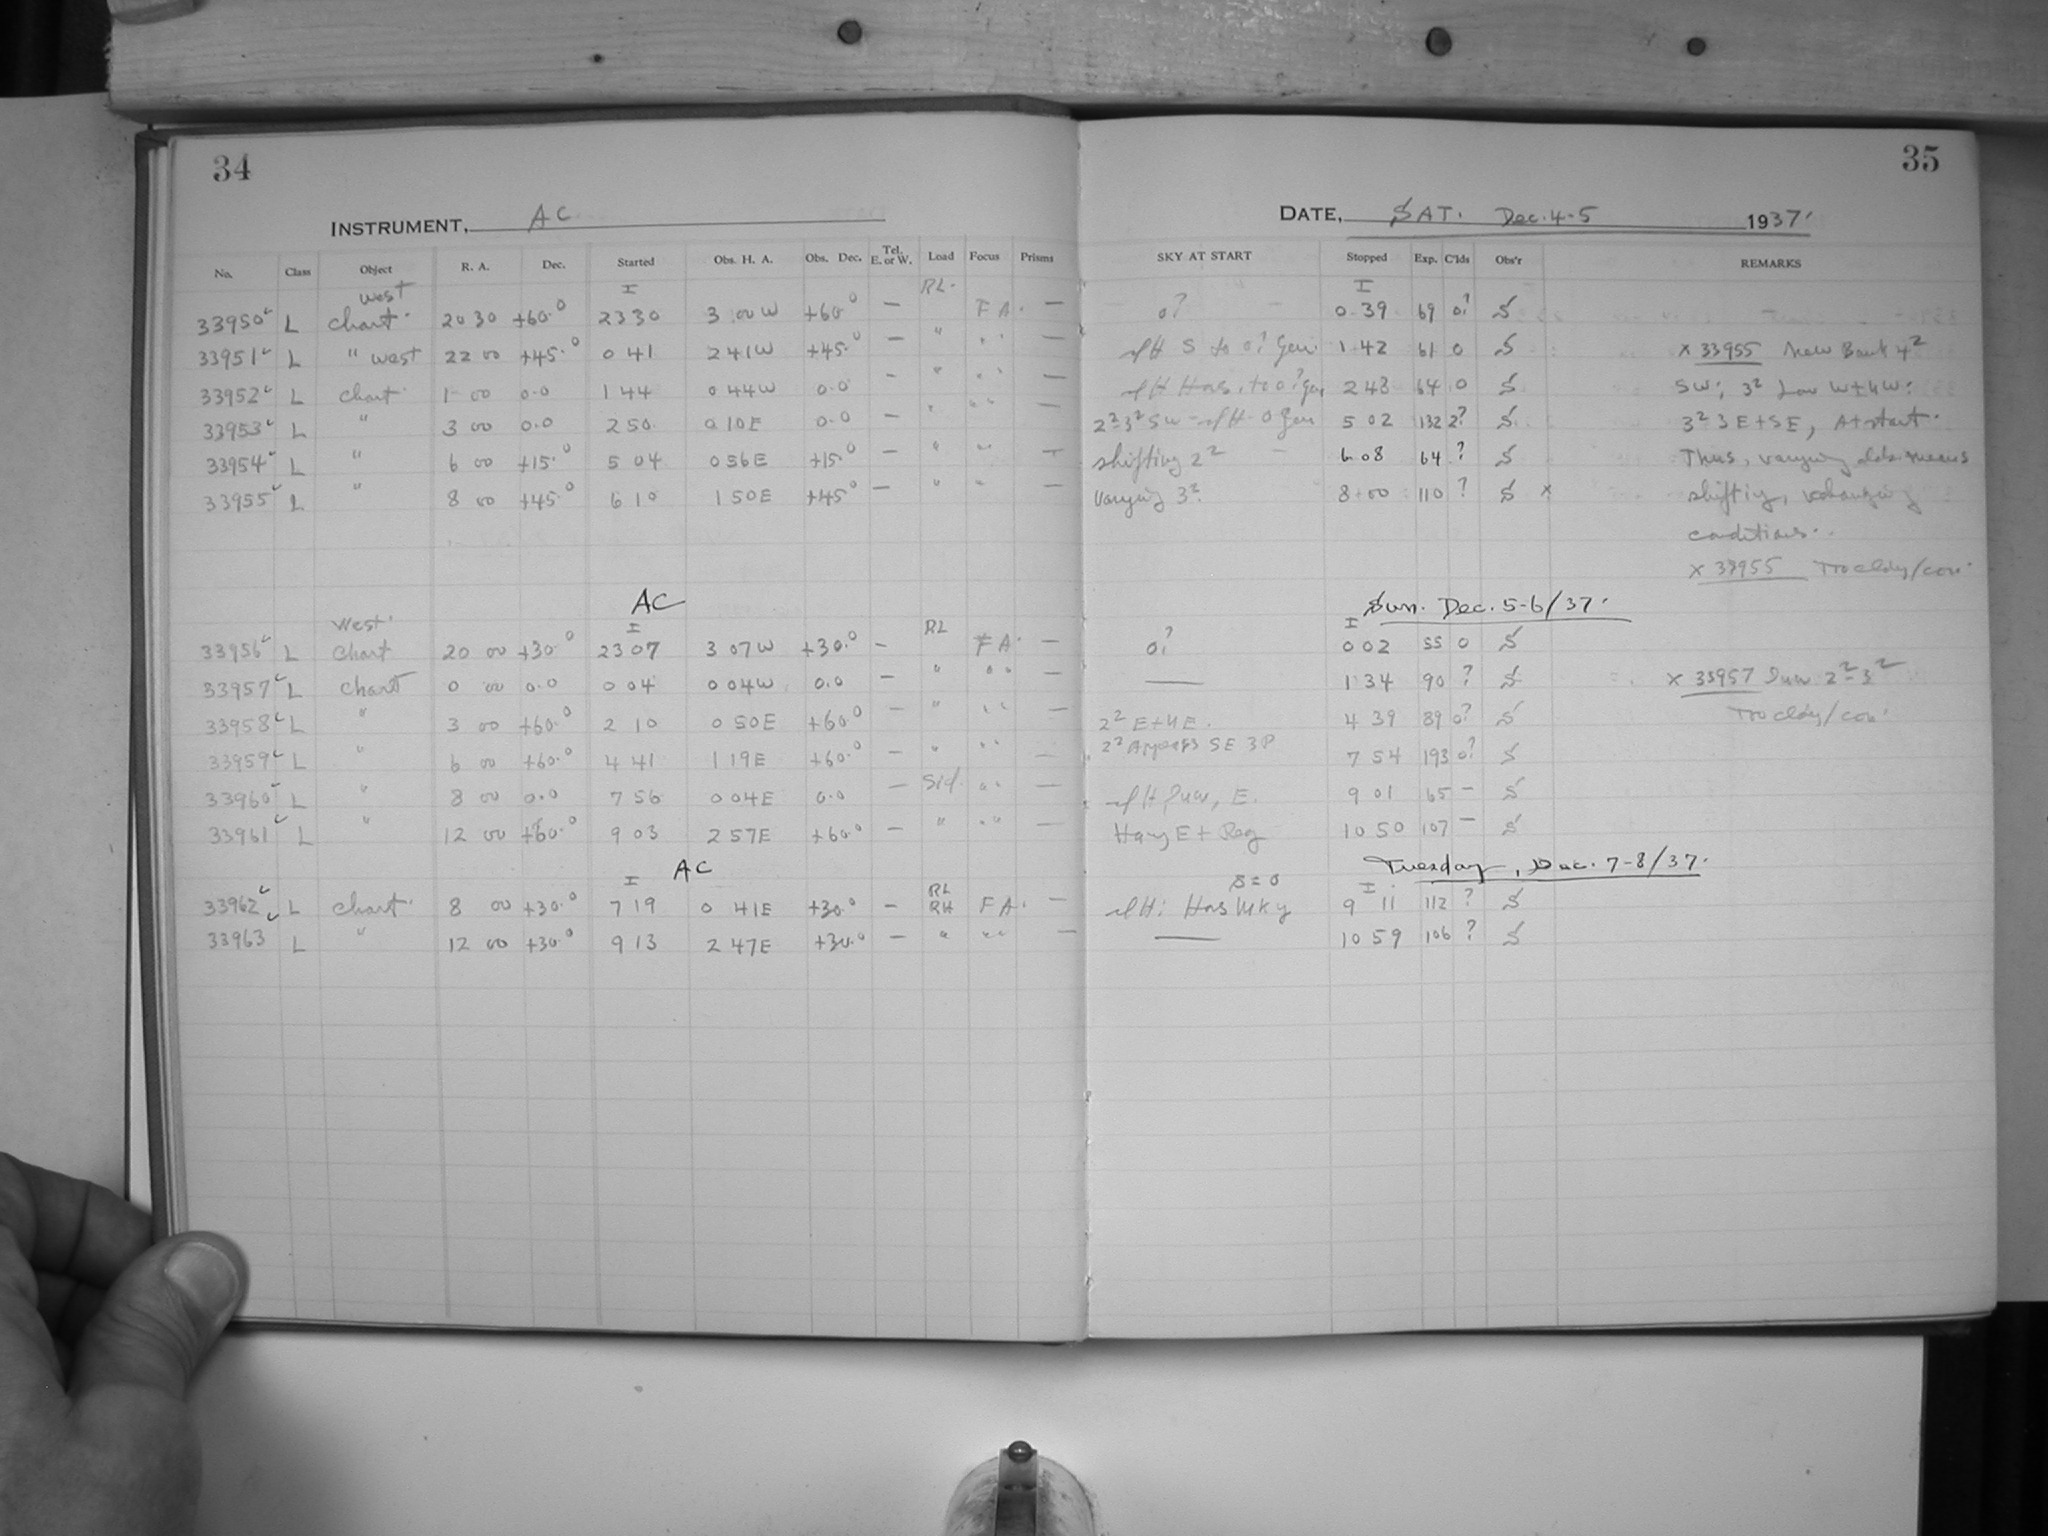 34
INSTRUMENT, AC
No. Class Object R. A. Dec. Started Obs. H. A. Obs. Dec. Tel. E. or W. Load Focus Prisms
West I RL.
33950 L Chart. 20 30 +60.° 23 30 3 00 W +60° — F A. —
33951 L " West 22 00 +45.° 0 41 2 41 W +45.° — " " —
33952 L Chart. 1 00 0.0 1 44 0 44 W 0.0 — " " —
33953 L " 3 00 0.0 2 50 0 10 E 0.0 — " " —
33954 L " 6 00 +15.° 5 04 0 56 E +15° — " " —
33955 L " 8 00 +45.° 6 10 1 50 E +45° — " " —
AC
West. I RL
33956 L Chart 20 00 +30.° 23 07 3 07 W +30.° — F A. —
33957 L Chart 0 00 0.0 0 04 0 04 W 0.0 — " " —
33958 L " 3 00 +60.° 2 10 0 50 E +60.° — " " —
33959 L " 6 00 +60.° 4 41 1 19 E +60.° — " " —
33960 L " 8 00 0.0 7 56 0 04 E 0.0 — Sid. " —
33961 L " 12 00 +60.° 9 03 2 57 E +60.° — " " —
AC
I RL
33962 L Chart. 8 00 +30.° 7 19 0 41 E +30.° — RH F A. —
33963 L " 12 00 +30.° 9 13 2 47 E +30.° — " " —
35
DATE, SAT. Dec. 4-5 1937.
SKY AT START Stopped Exp. C'lds Obs'r REMARKS
I
0? 0 39 69 0? S
S to 0? Gen. 1 42 61 0 S x 33955 New Bank 4²
to 0? Gen 2 48 64 0 S SW; 3² Low W + NW:
2²-3² SW 0 Gen 5 02 132 2? S 3² 3 E + SE, At start.
shifting 2² — 6 08 64 ? S Thus, varying means
Varying 3². 8 00 110 ? S x shifting, changing
conditions.
x 33955
Sun. Dec. 5-6/37.
I
0? 0 02 55 0 S
— 1 34 90 ? S x 33957 2²-3²
2² E + NE. 4 39 89 0? S
2² Appears SE 3P 7 54 193 0? S
E. 9 01 65 — S
Hazy E + 10 50 107 — S
Tuesday, Dec. 7-8/37.
S = 0 I
9 11 112 ? S
— 10 59 106 ? S